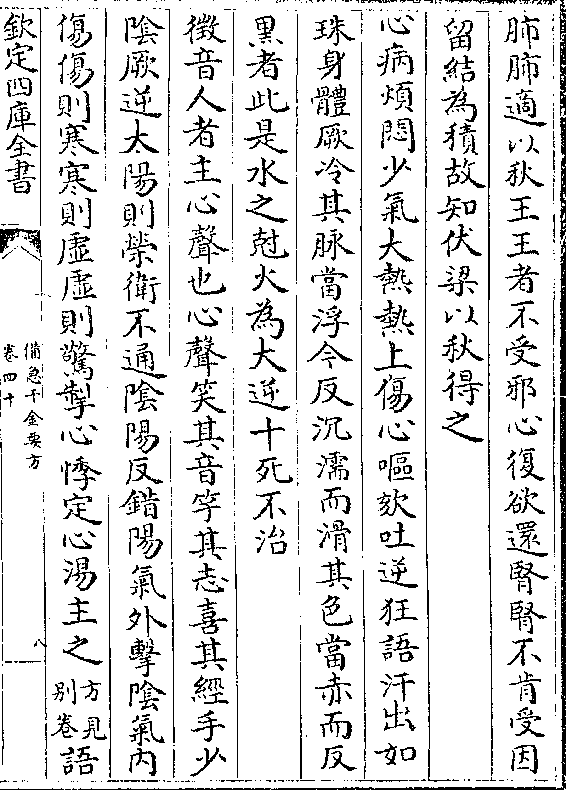 肺肺適以秋王王者不受邪心復欲還腎腎不肯受因
留結為積故知伏梁以秋得之
心病煩悶少氣大熱熱上傷心嘔欬吐逆狂語汗出如
珠身體厥冷其脉當浮今反沉濡而滑其色當赤而反
黑者此是水之尅火為大逆十死不治
徴音人者主心聲也心聲笑其音竽其志喜其經手少
陰厥逆大陽則榮衛不通陰陽反錯陽氣外擊陰氣内
傷傷則寒寒則虛虛則驚掣心悸定心湯主之方見别卷語
欽定四庫全書
備急千金要方
卷四十
八